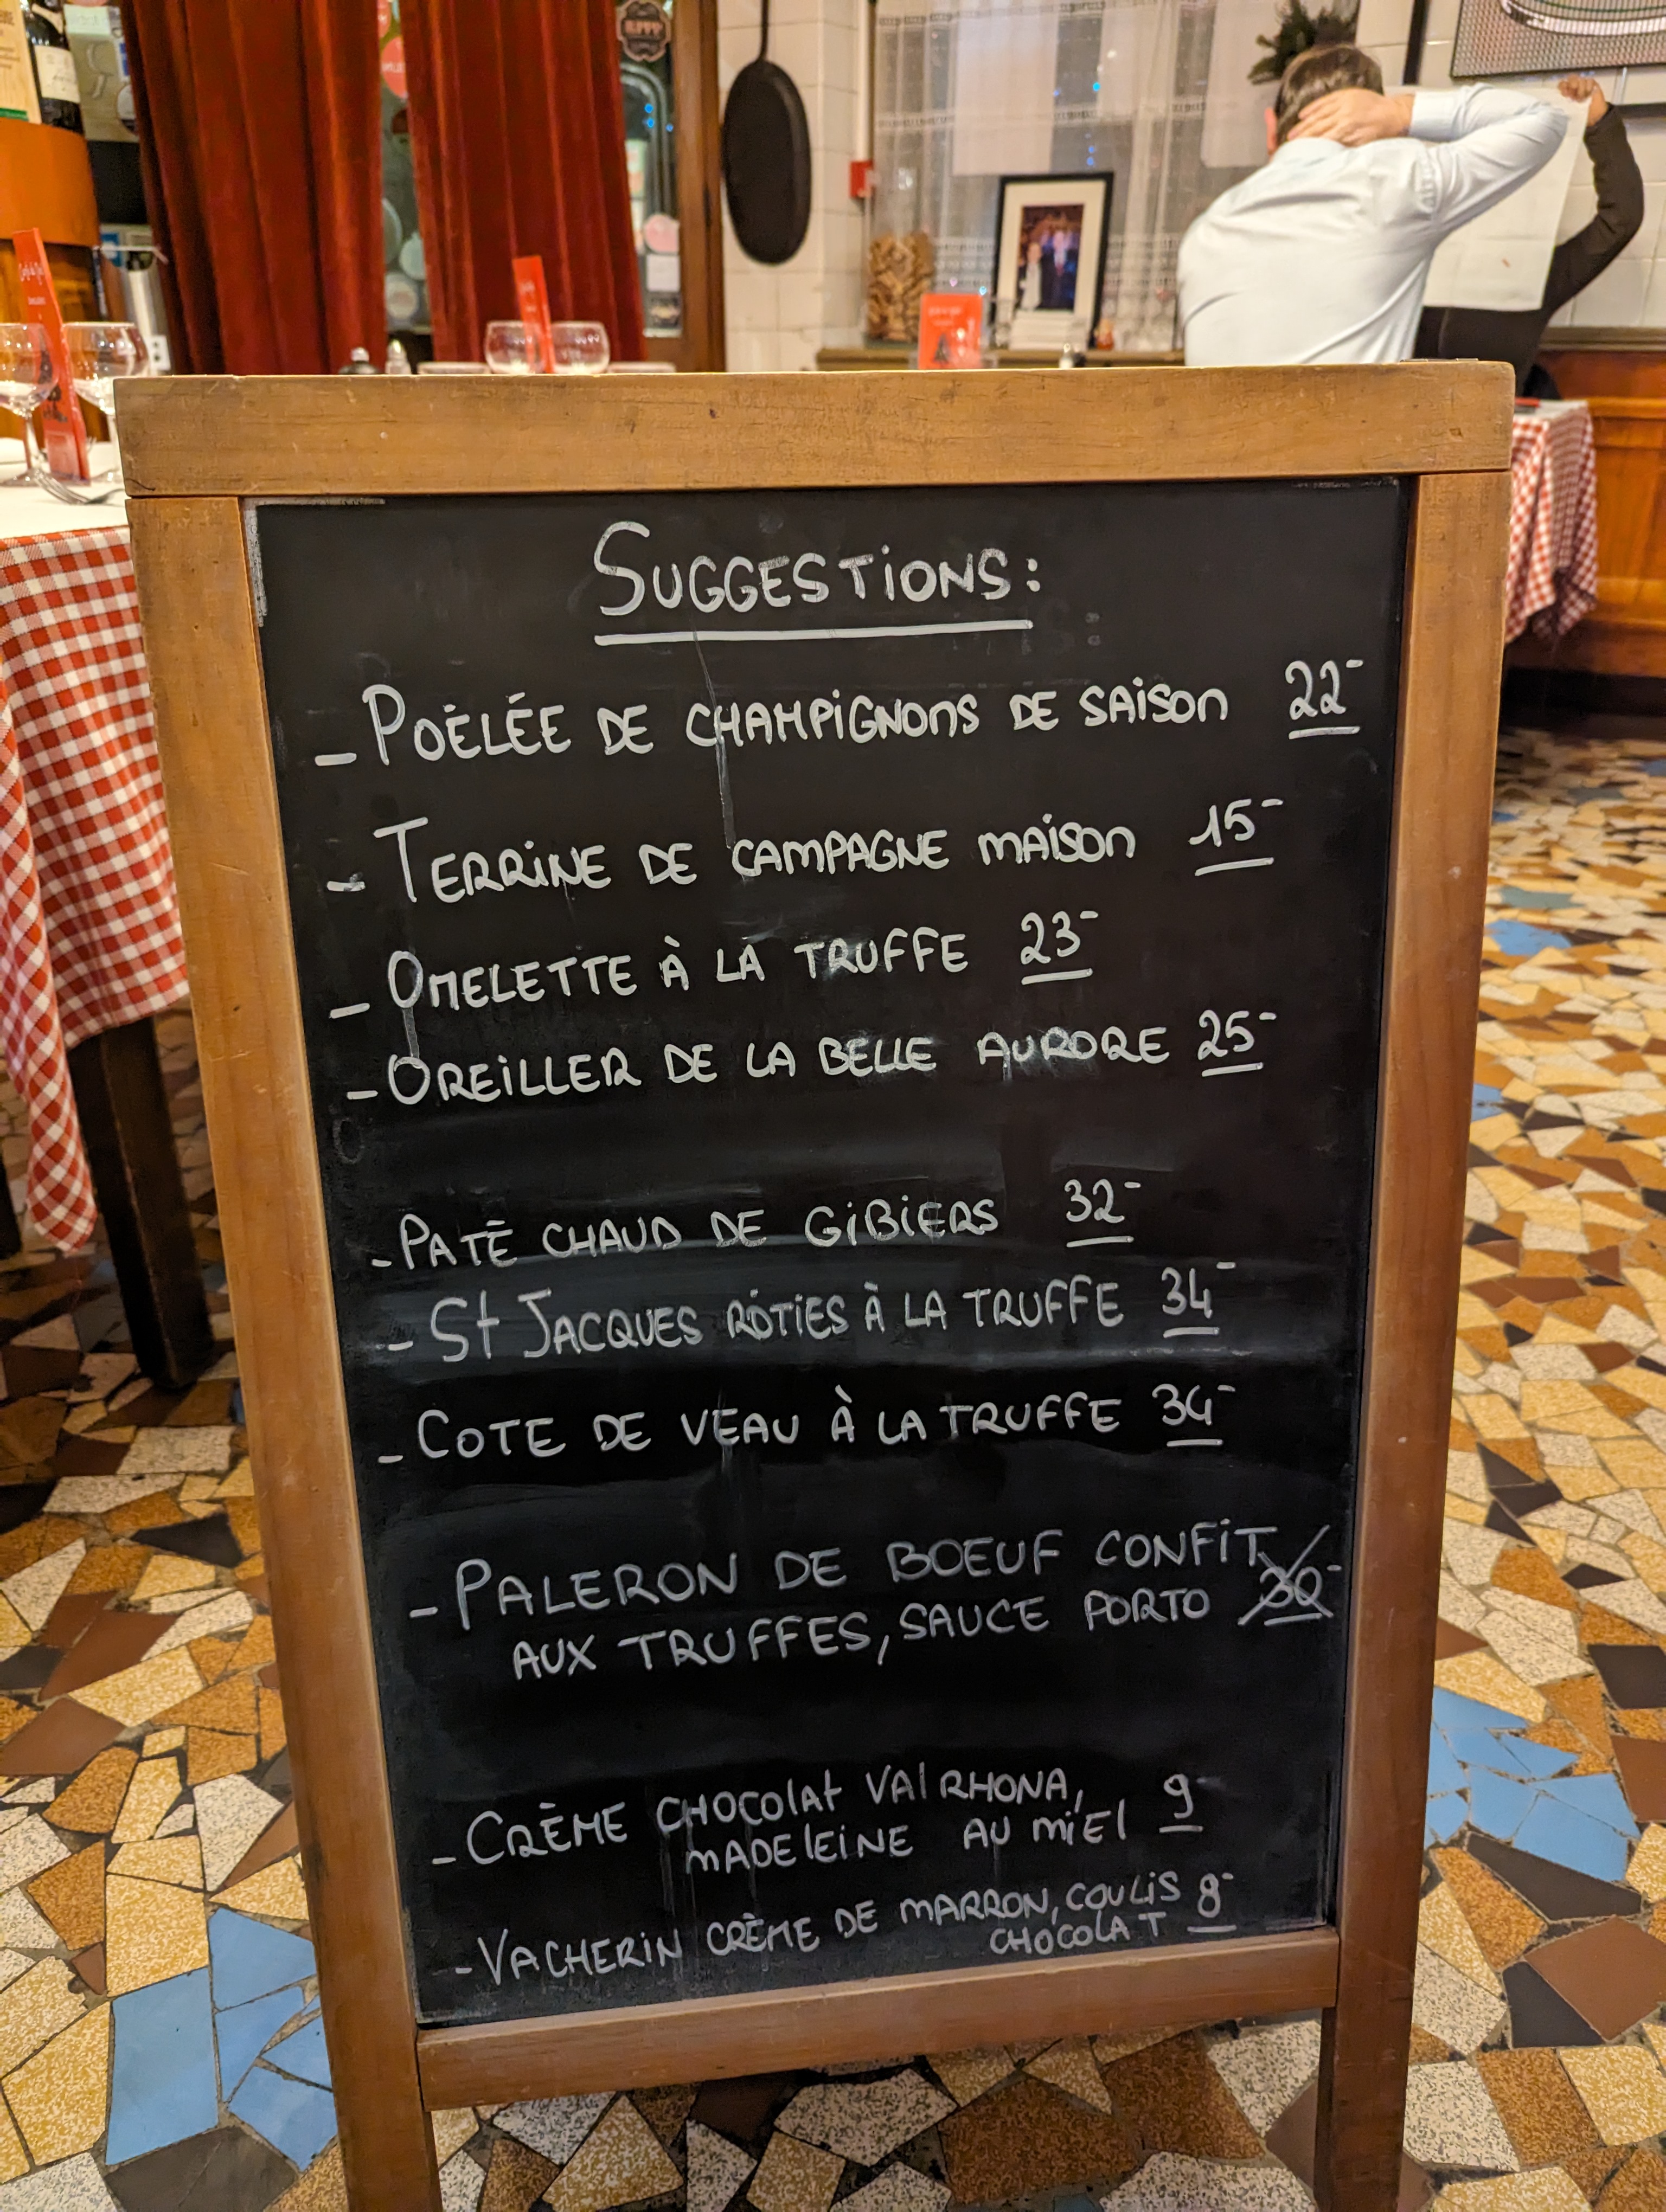 Suggestions:
- Poëlée de champignons de saison 22-
- Terrine de campagne maison 15-
- Omelette à la truffe 23-
- Oreiller de la belle aurore 25-
- Paté chaud de gibiers 32-
- St Jacques rôties à la truffe 34-
- Cote de veau à la truffe 34-
- Paleron de boeuf confit
aux truffes, sauce porto 30-
- Crème chocolat Valrhona,
madeleine au miel 9-
- Vacherin crème de marron, coulis 8-
chocolat